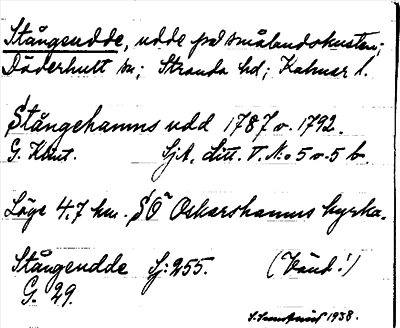 Stångeudde, udde på smålandskusten;
Döderhult sn; Stranda hd; Kalmar l.
Stångehamns udd 1787 o. 1792.
G. Klint. SjA, Litt. V. No 5 o. 5 b.
Läge 4,7 km. SÖ Oskarshamns kyrka.
Stångeudde Sj: 255. (Vänd!)
G. 29.
1938.